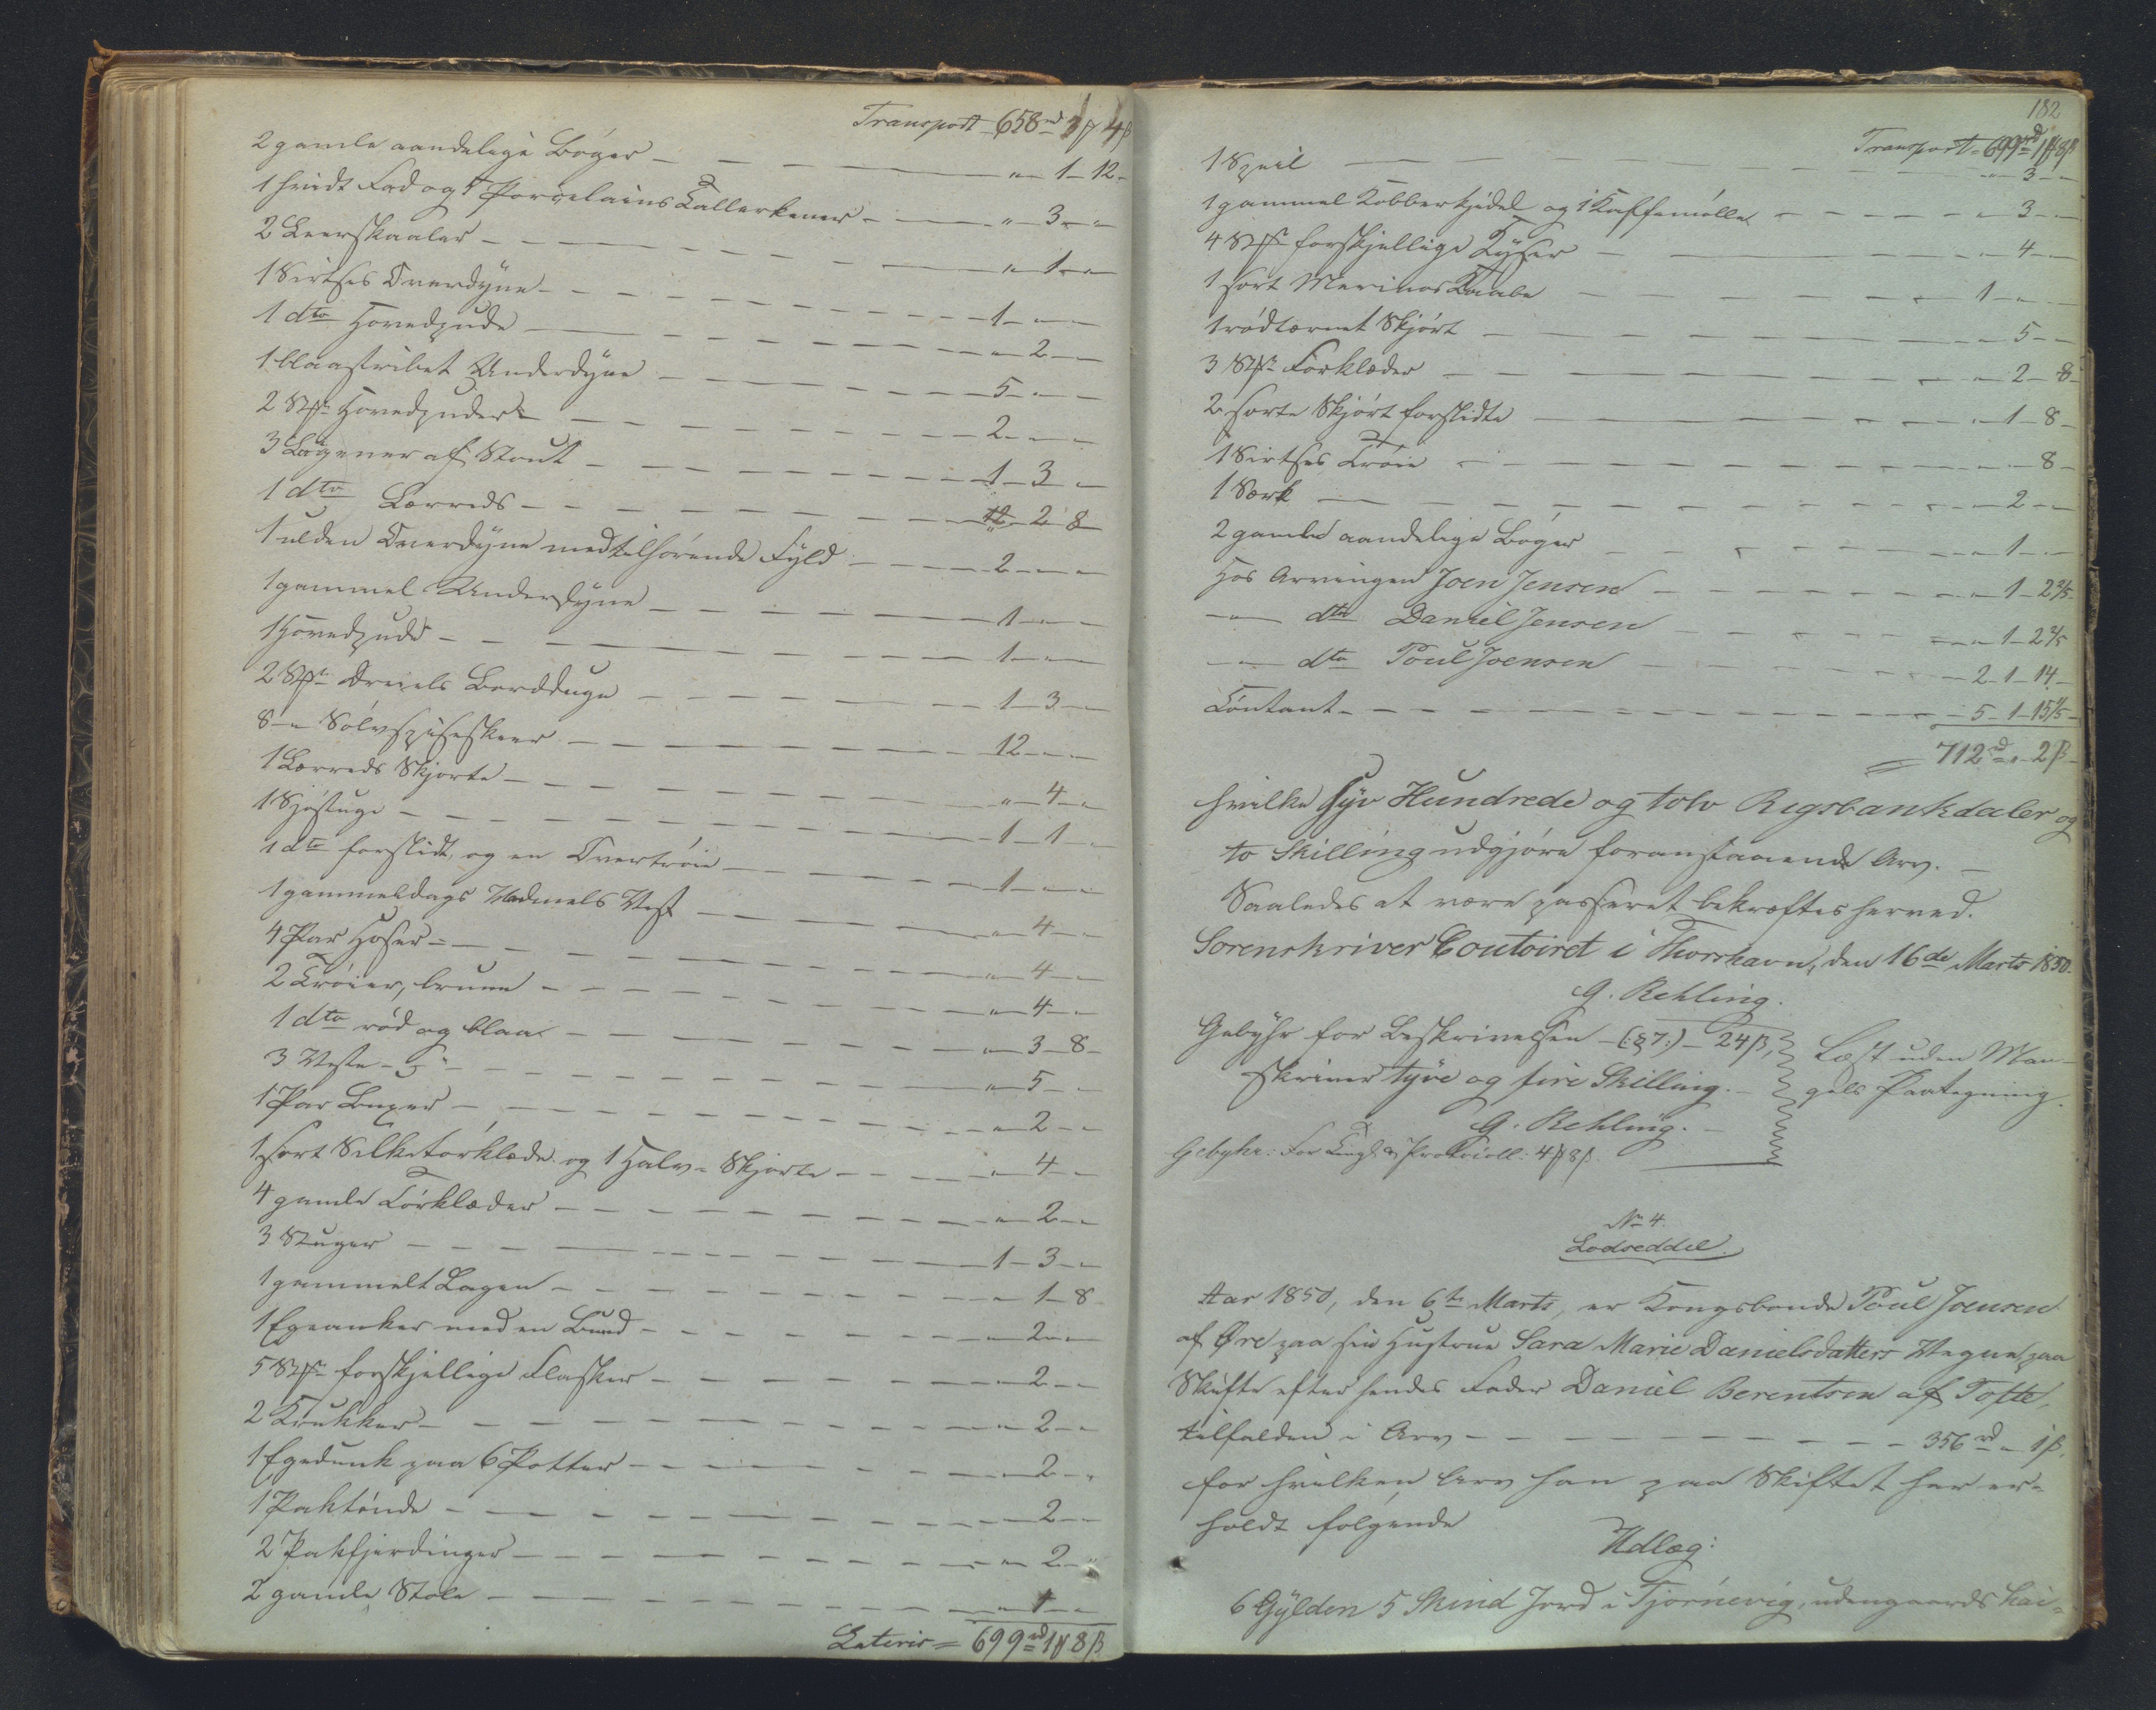 Transport 658rd 3 ₰ 4 β
2 gamle aandelige Bøger — — — " 1 - 12 -
1 hvidt Fad og 5 Porcelains Tallerkener — — " 3 - "
2 Leerskaaler — — — " 1 - "
1 Sirtses Overdyne — — — 1 - " - "
1 dto Hovedpude — — — " 2 - "
1 blaastribet Underdyne — — — 5 - " - "
2 Stkr Hovedpuder — — — 2 - " - "
3 Lagener af Stout — — — 1 - 3 - "
1 dto Lærreds — — — " 2 - 8
1 ulden Overdyne med tilhørende Fyld — — — 2 - " - "
1 gammel Underdyne — — — 1 - " - "
1 Hovedpude — — — 1 - " - "
2 Stkr Dreiels Bordduge — — — 1 - 3 - "
8 - " Sølvspiseskeer — — — 12 - " - "
1 Lærreds Skjorte — — — " 4 - "
1 Sjøstuge — — — 1 - 1 - "
1 dto forslidt, og en Overtrøie — — — 1 - " - "
1 gammeldags Vadmels Vest — — — " 4 - "
4 Par Hoser — — — " 4 - "
2 Trøier, brune — — — " 4 - "
1 dto rød og blaa — — — " 3 - 8 -
3 Veste — — — " 5 - "
1 Par Buxer — — — " 2 - "
1 sort Silketørklæde og 1 Halv-Skjorte — — — " 4 - "
4 gamle Tørklæder — — — " 2 - "
3 Stuger — — — 1 - 3 - "
1 gammelt Lagen — — — " 1 - 8
1 Egeanker med en Bund — — — " 2 - "
5 Stkr forskjellige Flasker — — — " 2 - "
2 Krukker — — — " 2 - "
1 Egedunk paa 6 Potter — — — " 2 - "
1 Paktønde — — — " 2 - "
2 Pakfjerdinger — — — " 2 - "
2 gamle Stole — — — " 1 - "
Lateris = 699rd 1 ₰ 8 β
182
Transport = 699rd 1 ₰ 8 β
1 Speil — — — " 3 - "
1 gammel Kobberkjedel og 1 Kaffemølle — — — " 3 - "
4 Stkr forskjellige Tyser — — — " 4 - "
1 sort Merinos Kaabe — — — 1 - " - "
1 rødternet Skjørt — — — " 5 - "
3 Stkr Forklæder — — — " 2 - 8 -
2 sorte Skjørt forslidte — — — " 1 - 8 -
1 Sirtses Trøie — — — " " - 8 -
1 Særk — — — " 2 - "
2 gamle aandelige Bøger — — — " 1 - "
Hos Arvingen Joen Jensen — — — " 1 - 2 2/5
— " — dto Daniel Jensen — — — " 1 - 2 2/5
— " — dto Poul Joensen — — — 2 - 1 - 14 -
Contant — — — 5 - 1 - 15 1/5 -
= 712rd " - 2 β -
hvilke syv Hundrede og tolv Rigsbankdaler og
to Skilling udgjøre foranstaaende Arv. —
Saaledes at være passeret bekræftes herved.
Sorenskriver Contoiret i Thorshavn, den 16de Marts 1850.
G. Rehling.
Gebyhr for Beskrivelsen - (: § 7 :) - 24 β,
skriver tyve og fire Skilling. —
G. Rehling. —
Læst uden Man-
gels Paategning.
Gebyhr: For Tingl. & Protocoll: 4 ₰ 8 β.
No 4.
Lodseddel.
Aar 1850, den 6te Marts, er Kongsbonde Poul Joensen
af Øre paa sin Hustrue Sara Marie Danielsdatters Vegne paa
Skifte efter hendes Fader Daniel Berentsen af Tofte,
tilfalden i Arv — — — 356rd " - 1 β.
for hvilken Arv han paa Skiftet har er-
holdt følgende
Udlæg:
6 Gylden 5 Skind Jord i Tjørnevig, udengaards hai-